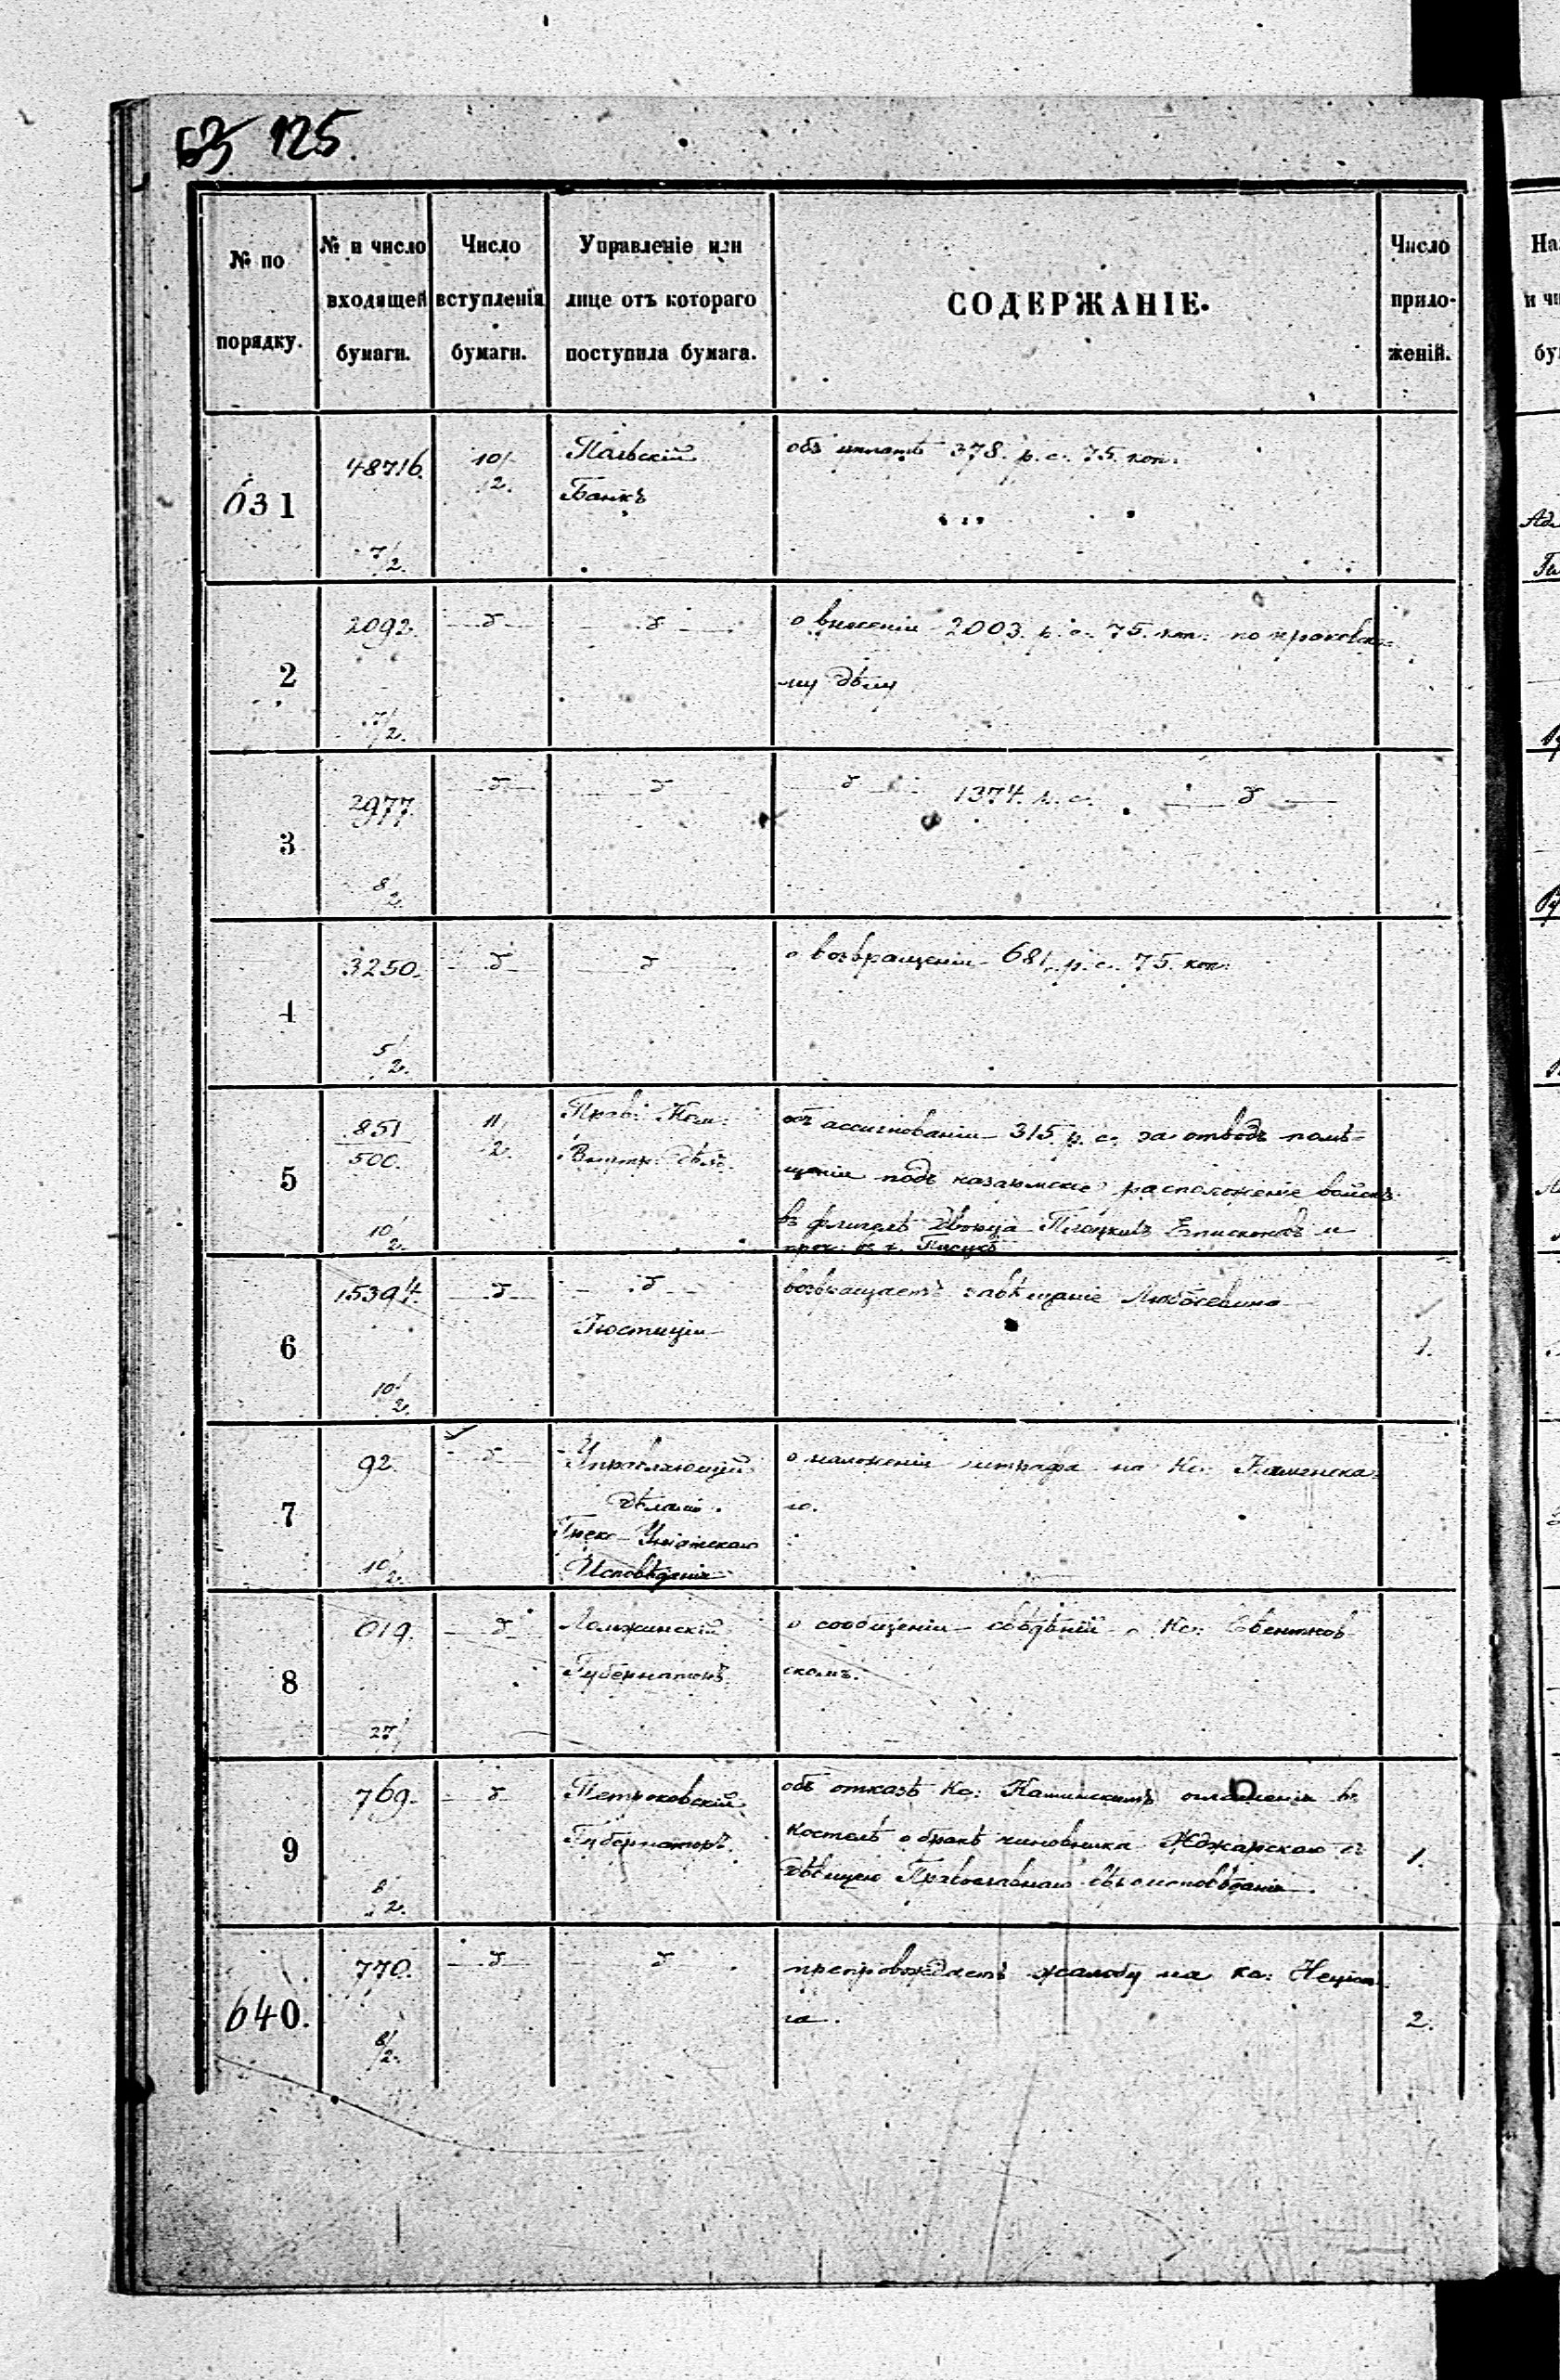 63 125
№ по порядку.
№ и число входящей бумаги.
Число вступленія бумаги.
Управленіе или лице отъ котораго поступила бумага.
СОДЕРЖАНІЕ.
Число приложеній.
631
48716.
7/2.
10/2.
Польскій
Банкъ
объ уплатѣ 378. р. с. 75. коп.
2
2092.
7/2.
— д —
— д —
о внесеніи 2003. р. с. 75. коп. по
му дѣлу
3
2977.
8/2.
— д —
— д —
— д — 1374. р. с. — д —
4
3250.
5/2.
— д —
— д —
о возвращеніи 681. р. с. 75. коп.
5
851
500.
10/2.
11/2.
Прав: Ком:
Внутр. Дѣлъ.
объ ассигнованіи 315 р. с. за отводъ помѣ-
щенія подъ казарменное расположеніе войскъ
въ флигелѣ Дворца Епископовъ и
6
15394.
10/2.
— д —
— д —
Юстиціи
возвращаетъ завѣщаніе
1.
7
92.
10/2.
— д —
Управляющій
дѣлами
Греко-Уніятскаго
Исповѣданія
о наложеніи штрафа на Кс: Каменска-
го.
8
619.
27/
— д —
Ломжинскій
Губернаторъ.
о сообщеніи свѣдѣній о Кс: Свентков-
скомъ.
9
769.
8/2.
— д —
Петроковскій
Губернаторъ.
объ отказѣ Кс: оглашенія въ
костелѣ о бракѣ чиновника съ
дѣвицею Православнаго вѣроисповѣданія.
1.
640.
770.
8/2.
— д —
— д —
препровождаетъ жалобу на кс:
га.
2.